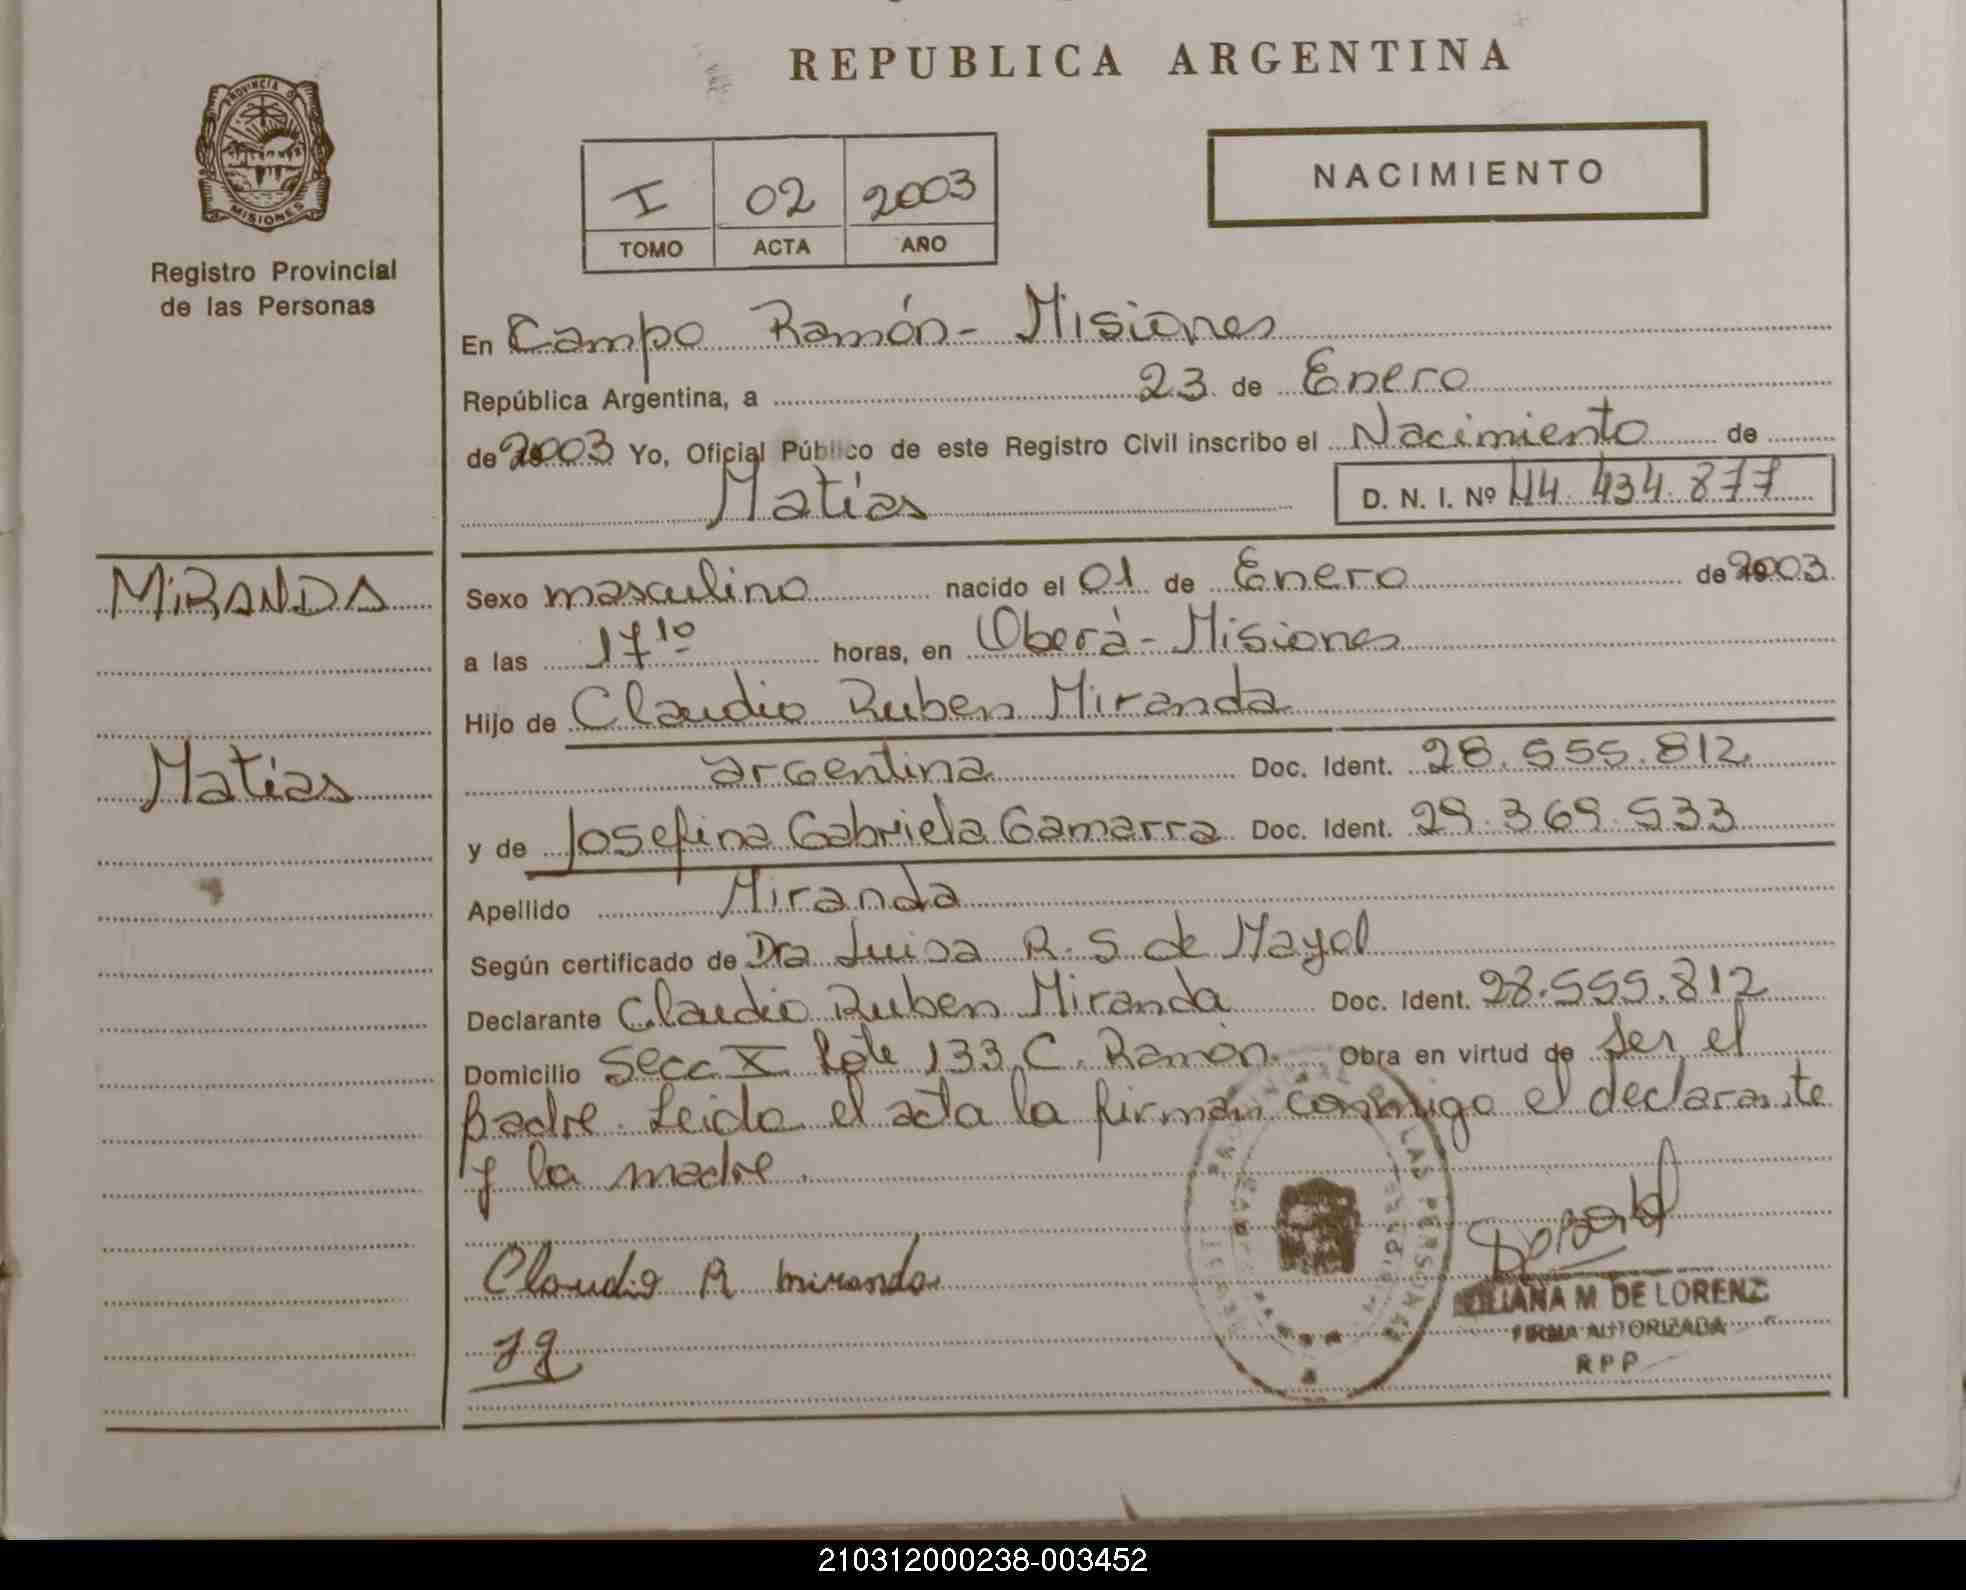 REPUBLICA ARGENTINA
PROVINCIA DE
MISIONES
Registro Provincial
de las Personas
I 02 2003
TOMO ACTA AÑO
NACIMIENTO
En Campo Ramón - Misiones
República Argentina, a 23 de Enero
de 2003 Yo, Oficial Público de este Registro Civil inscribo el Nacimiento de
Matías
D. N. I. Nº 44.434.877
MIRANDA
Matías
Sexo masculino nacido el 01 de Enero de 2003
a las 17 10 horas, en Oberá - Misiones
Hijo de Claudio Ruben Miranda
argentina Doc. Ident. 28.555.812
y de Josefina Gabriela Gamarra Doc. Ident. 29.369.533
Apellido Miranda
Según certificado de Dra Luisa R. S. de Mayol
Declarante Claudio Ruben Miranda Doc. Ident. 28.555.812
Domicilio Secc X lote 133 C. Ramón. Obra en virtud de ser el
padre. Leida el acta la firman conmigo el declarante
y la madre.
LAS PERSONAS
Claudio R miranda
JG
LILIANA M. DE LORENZ
FIRMA AUTORIZADA
R P P
210312000238-003452